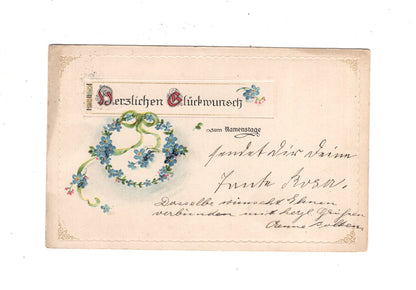 Herzlichen Glückwunsch
zum Namenstage
sendet Dir Deine
Tante Rosa.
Dasselbe wünscht Ihnen
verbunden mit herzl. Grüßen
Anna